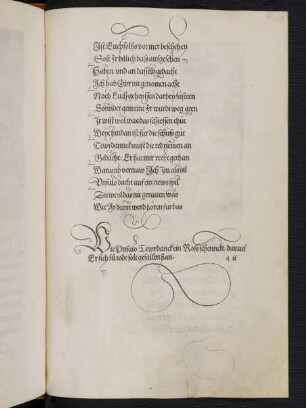 Ist Euch solhs vor mer beschehen
Solt Ir billich bass aufgesehen
Haben und an dasselb gedacht
Ich hab Ewr nit genomen acht
Noch Euch geheyssen darbey
Sonnder gemeint Ir wurdt weg geen
Ir wist wol was das schiessen thut
Weyt hindan ist für die schüss gut
Tewrdannck muest die red nemen an
Gedacht Er hat mir recht gethan
Warumb vertraw Ich Im als vil
Unfalo dacht auf ein news spil
Zuewegen das nit genauen was
Wie Ir dann werd horen fur bas
Wie Unfalo Tewrdanck ein Ross schennckt darauf
Er sich zu tode solt gefallen han.